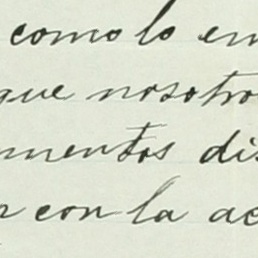 como lo en
que nosotro
mentos dis
con la ac